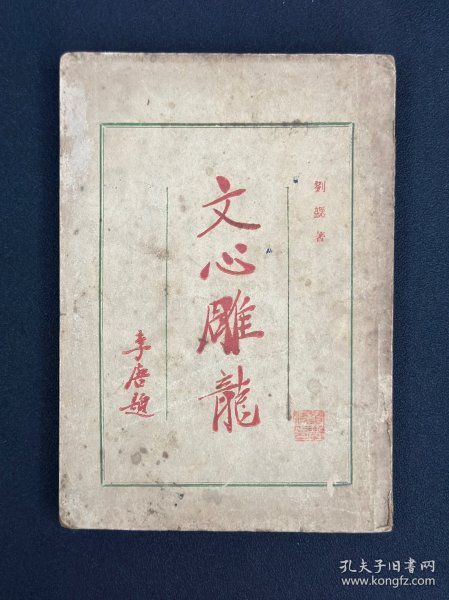 劉勰著
文心雕龍
李唐題
孔夫子旧书网
www.kongfz.com